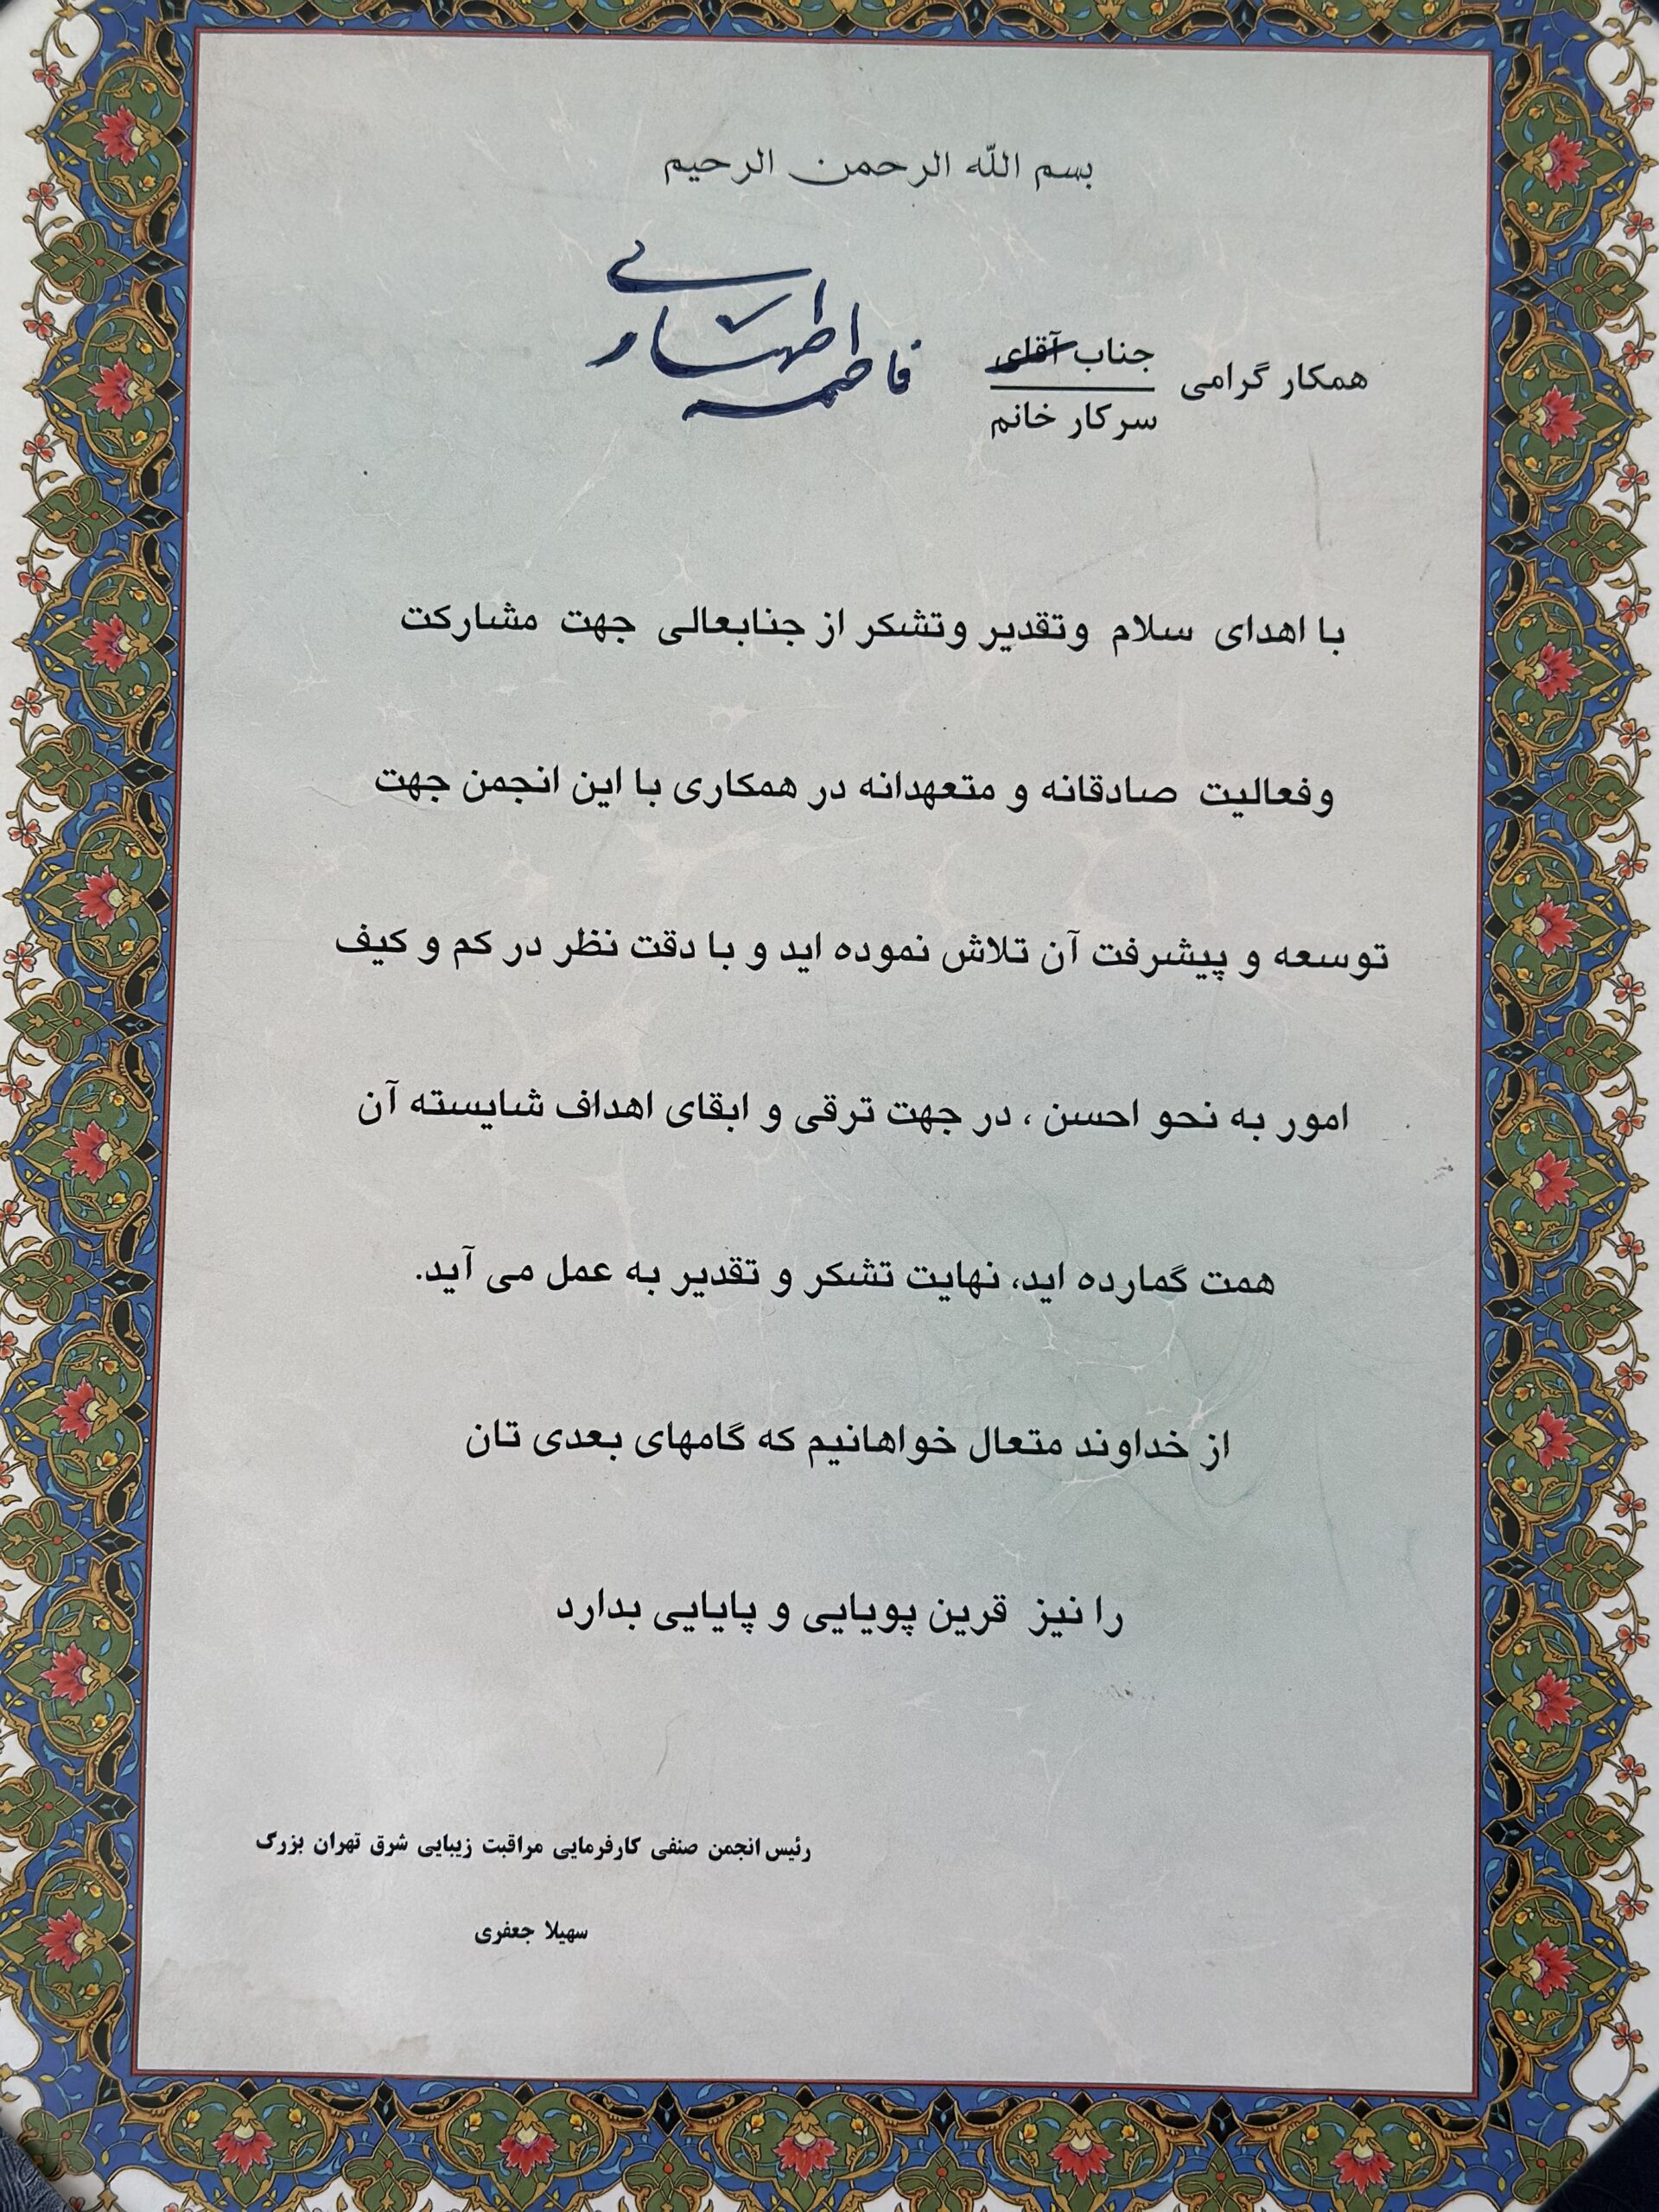 بسم الله الرحمن الرحیم
همکار گرامی جناب آقای
سرکار خانم
فاطمه
با اهدای سلام وتقدیر وتشکر از جنابعالی جهت مشارکت
وفعالیت صادقانه و متعهدانه در همکاری با این انجمن جهت
توسعه و پیشرفت آن تلاش نموده اید و با دقت نظر در کم و کیف
امور به نحو احسن ، در جهت ترقی و ابقای اهداف شایسته آن
همت گمارده اید، نهایت تشکر و تقدیر به عمل می آید.
از خداوند متعال خواهانیم که گامهای بعدی تان
را نیز قرین پویایی و پایایی بدارد
رئیس انجمن صنفی کارفرمایی مراقبت زیبایی شرق تهران بزرگ
سهیلا جعفری